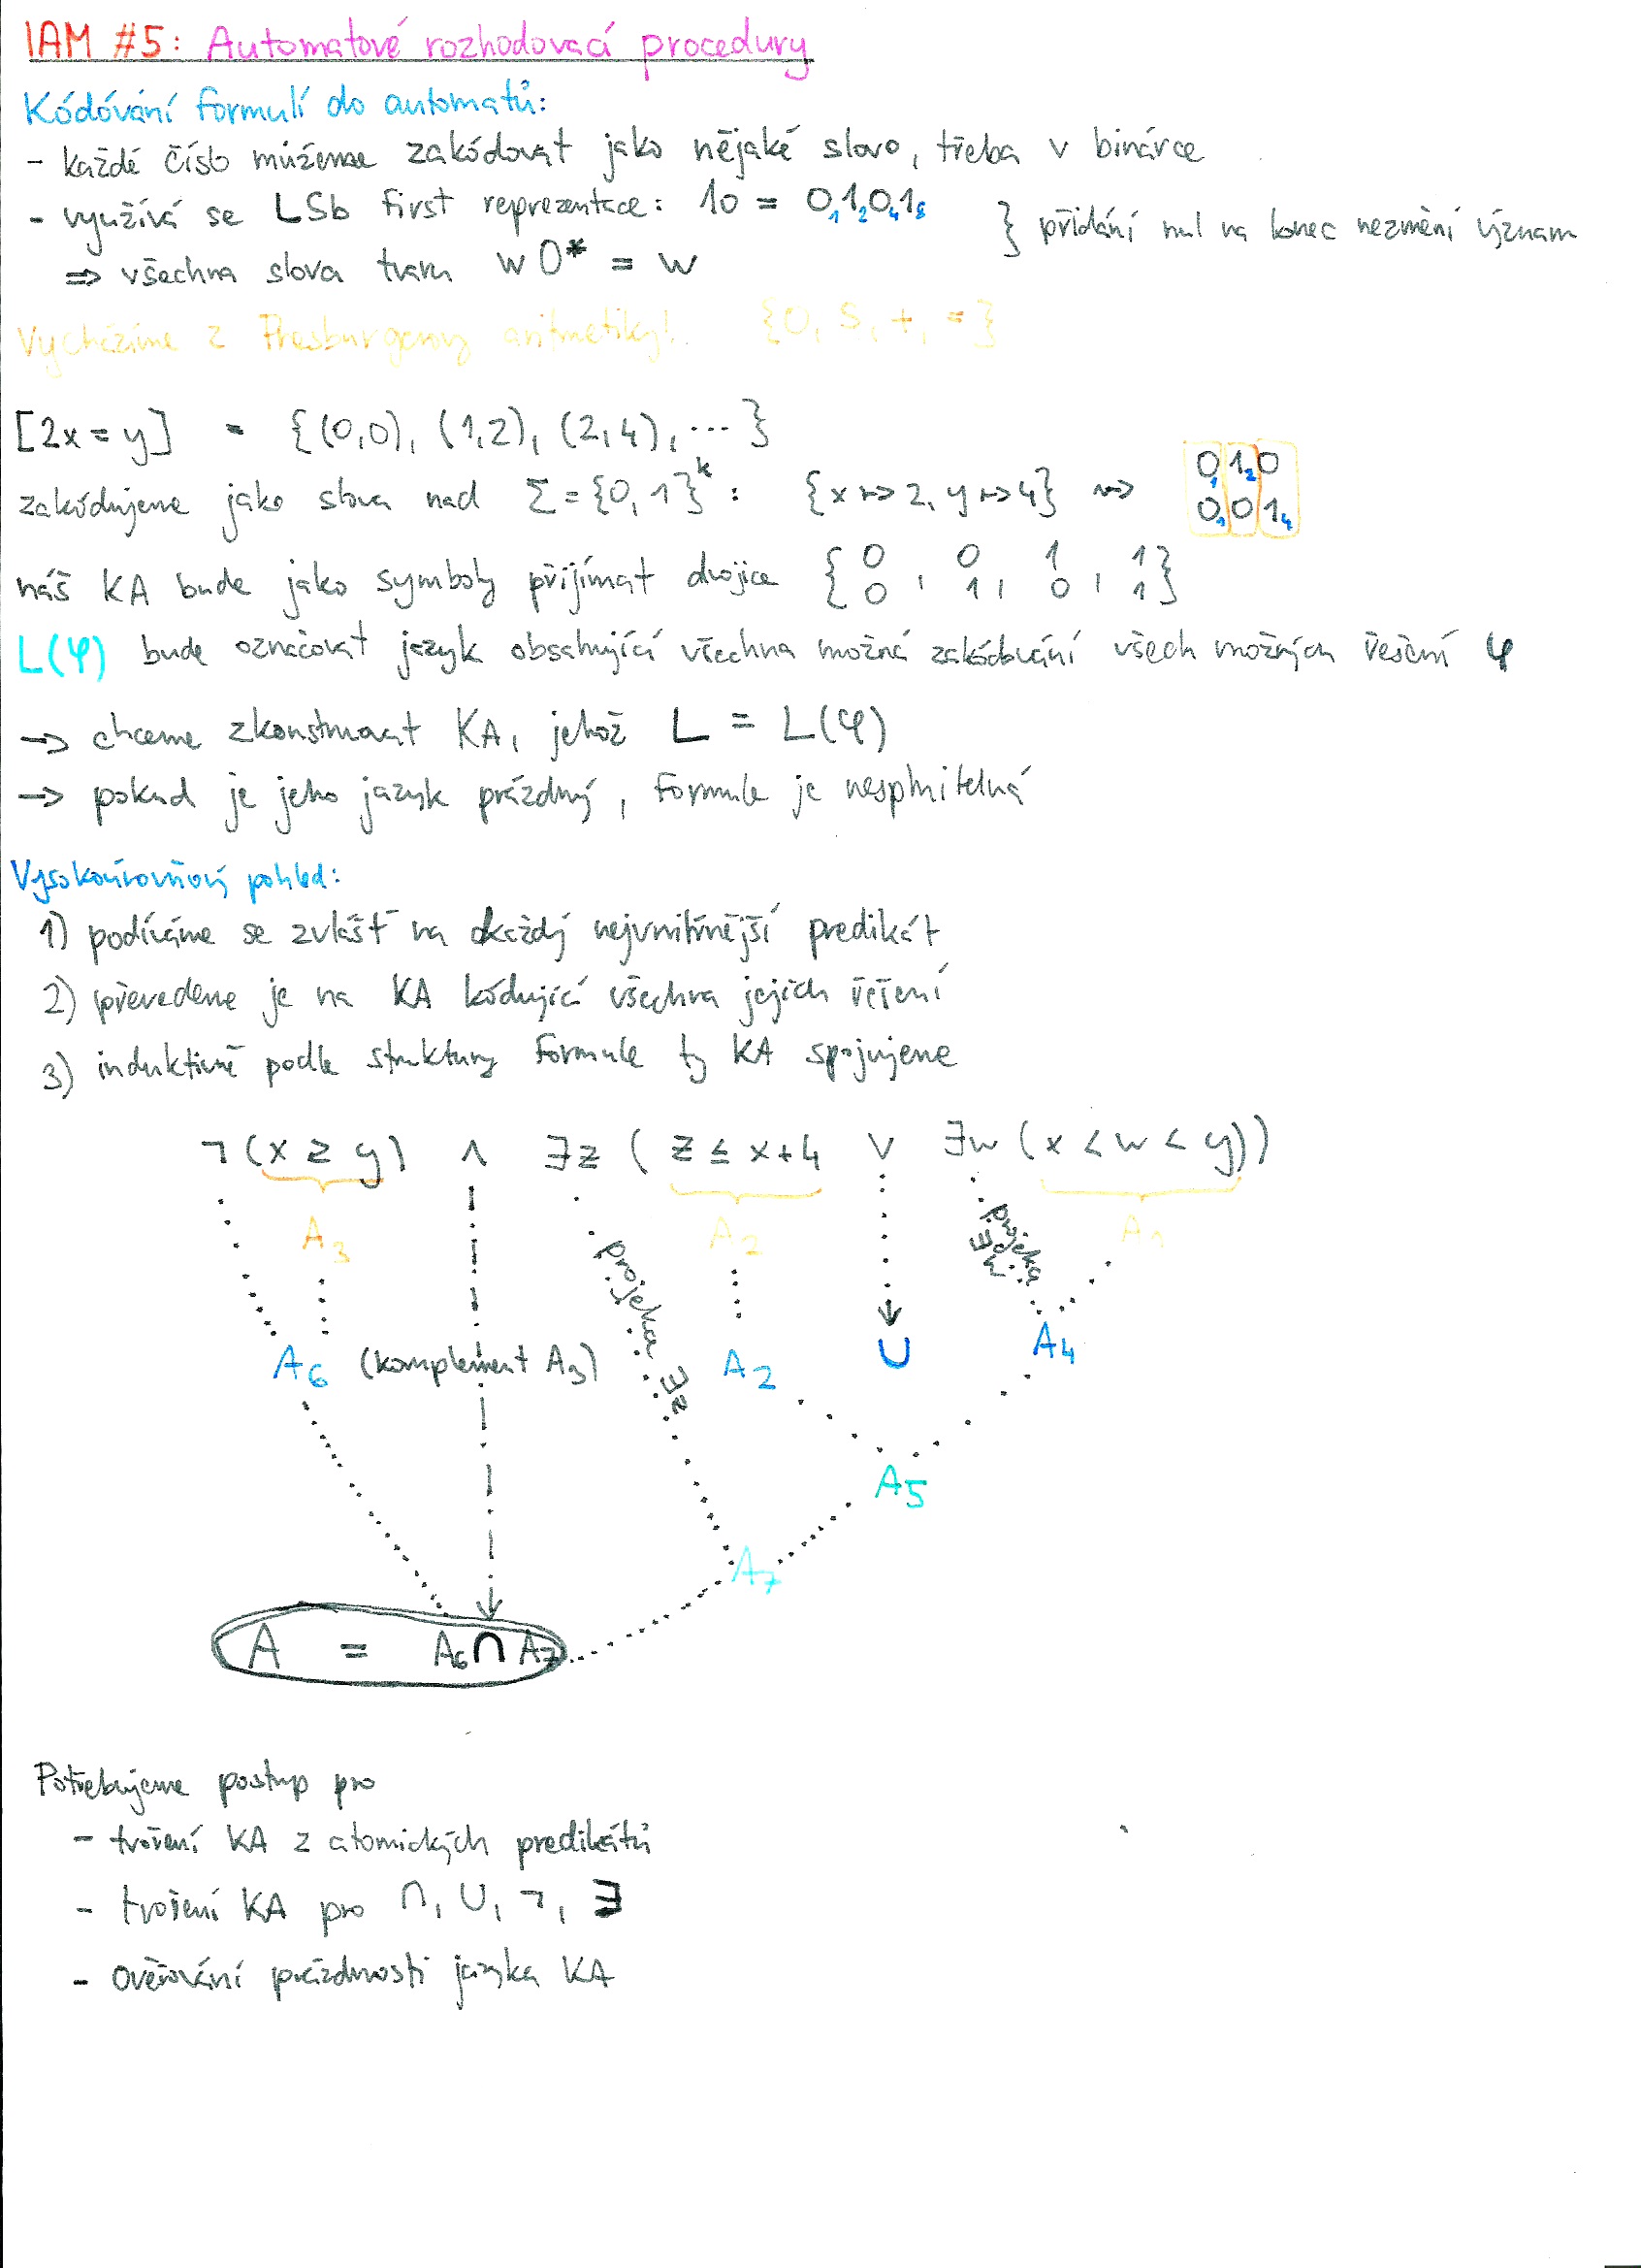 IAM #5: Automatové rozhodovací procedury
Kódování formulí do automatů:
- každé číslo můžeme zakódovat jako nějaké slovo, třeba v binárce
- využívá se LSb first reprezentace: 10 = 0₁1₂0₄1₈ } přidání nul na konec nezmění význam
⇒ všechna slova tvaru w0* = w
Vycházíme z Presburgerovy aritmetiky!. {0, S, +, =}
[2x = y] = {(0,0), (1,2), (2,4), ...}
zakódujeme jako slova nad Σ = {0,1}ᵏ: {x ↦ 2, y ↦ 4} ⇝ 0₁1₂0
0₁01₄
náš KA bude jako symboly přijímat dvojice { 0 , 0 , 1 , 1 }
0 , 1 , 0 , 1
L(φ) bude označovat jazyk obsahující všechna možná zakódování všech možných řešení φ
→ chceme zkonstruovat KA, jehož L = L(φ)
→ pokud je jeho jazyk prázdný, formule je nesplnitelná
Vysokoúrovňový pohled:
1) podíváme se zvlášť na každý nejvnitřnější predikát
2) převedeme je na KA kódující všechna jejich řešení
3) induktivně podle struktury formule ty KA spojujeme
¬(x ≥ y) ∧ ∃z (z ≤ x+4 ∨ ∃w (x < w < y))
A₃ A₂ A₁
projekce ∃z
projekce ∃w
A₆ (komplement A₃) A₂ ∪ A₄
A₅
A₇
A = A₆ ∩ A₇
Potřebujeme postup pro
- tvoření KA z atomických predikátů
- tvoření KA pro ∩, ∪, ¬, ∃
- ověřování prázdnosti jazyka KA